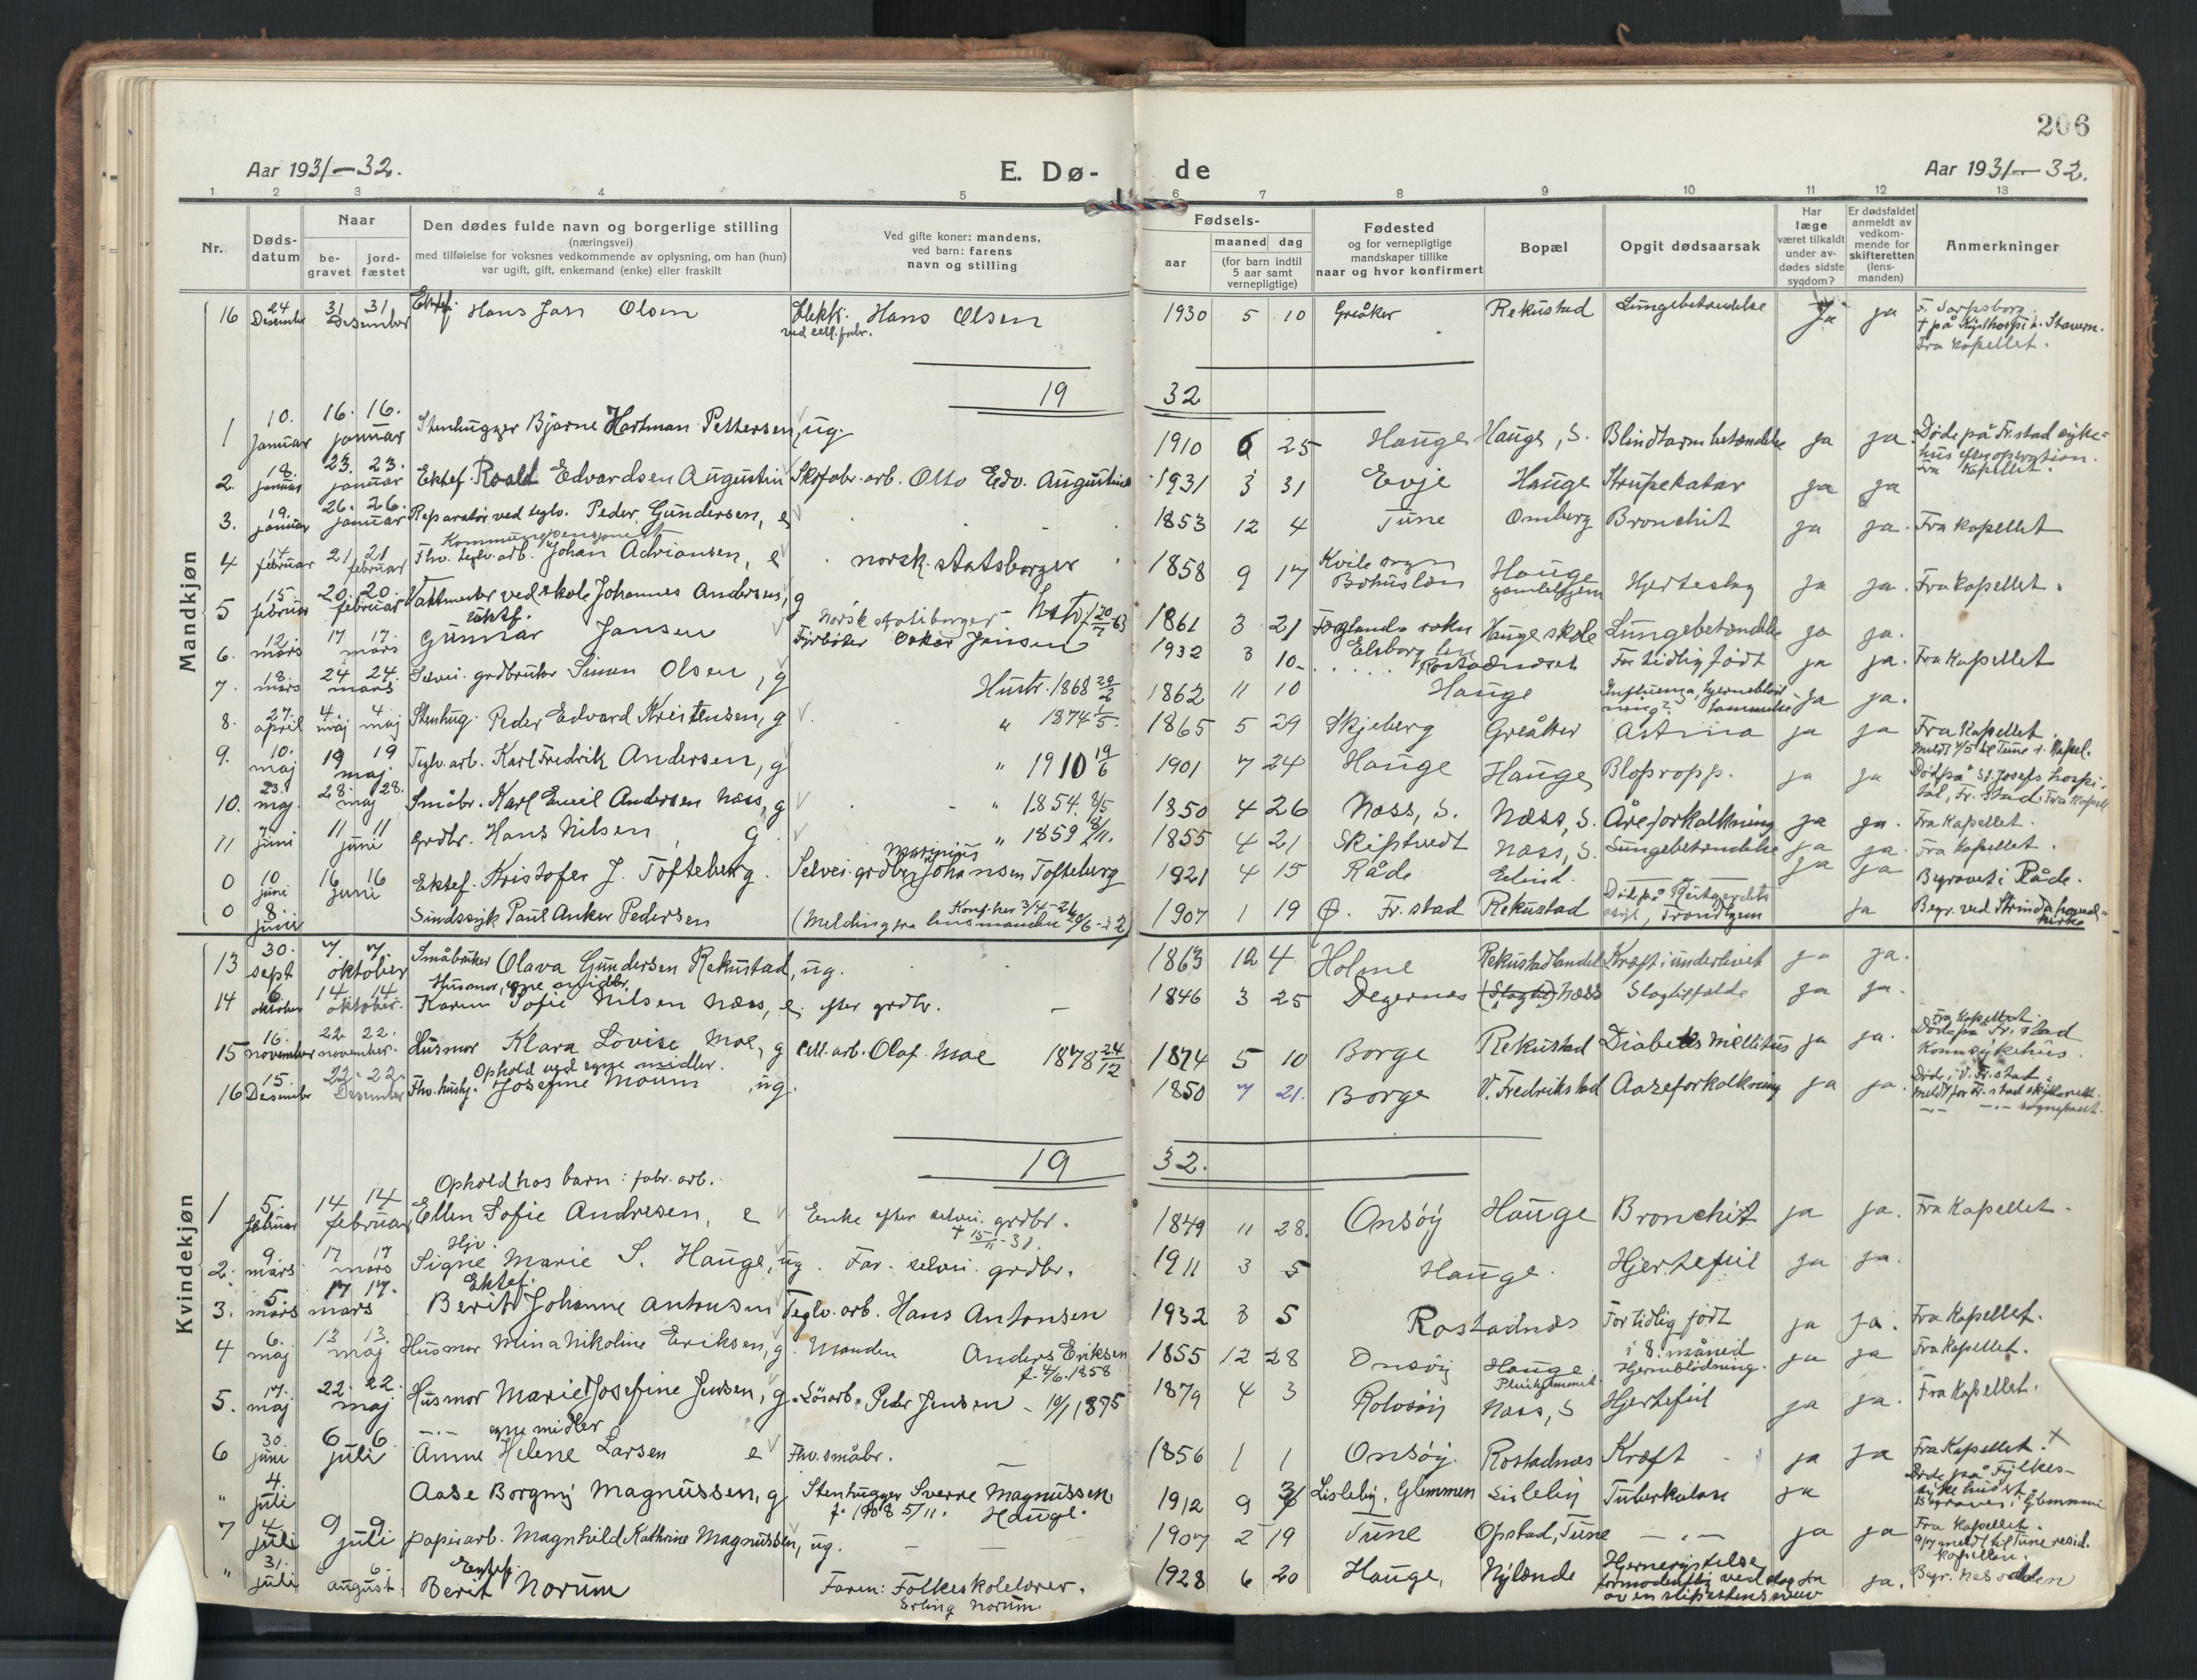 206
Aar 1931-32. E. Dø- de Aar 1931-32.
1 2 3 4 5 6 7 8 9 10 11 12 13
Nr. Døds-datum Naar be-gravet jord-fæstet Den dødes fulde navn og borgerlige stilling (næringsvei) med tilføielse for voksnes vedkommende av oplysning, om han (hun) var ugift, gift, enkemand (enke) eller fraskilt Ved gifte koner: mandens, ved barn: farens navn og stilling Fødsels- aar maaned dag (for barn indtil 5 aar samt vernepligtige) Fødested og for vernepligtige mandskaper tillike naar og hvor konfirmert Bopæl Opgit dødsaarsak Har læge været tilkaldt under av-dødes sidste sygdom? Er dødsfaldet anmeldt av vedkom-mende for skifteretten (lens-manden) Anmerkninger
Mandkjøn
16 24 Desember 31 31 Desember Ektef. Hans Jan Olsen Hans Olsen ved cell.fabr. 1930 5 10 Greåker Rekustad Lungebetændelse Ja ja F. Sarpsborg. † på Kysthospit. Stavern. Fra kapellet.
19 32
1 10. Januar 16. 16. januar Stenhugger Bjarne Hartman Pettersen, ug. 1910 6 25 Hauge Hauge, S. Blindtarmbetændelse ja ja. Døde på Fr.stad syke-hus efter operation. Fra kapellet.
2. 18. januar 23. 23. januar Ektef. Roald Edvardsen Augustin Skofabr.arb. Otto Edv. Augustin 1931 3 31 Evje Hauge Strupekatar ja ja
3. 19. januar 26. 26. januar Reparatør ved teglv. Peder Gundersen, e 1853 12 4 Tune Omberg Bronchit ja ja. Fra kapellet
4 14 februar 21 21 februar Kommunepensjonist Fhv. teglv.arb. Johan Adriansen, e norsk statsborger 1858 9 17 Kvile sogn Bohuslän Hauge gamlehjem Hjerteslag ja ja. Fra kapellet.
5 15. februar 20. 20. februar Vaktmester ved skole Johannes Andersen, g Norsk statsborger - hstr. f. 20/7 63 1861 3 21 Færglanda sokn Elsborg len Hauge skole Lungebetændelse ja ja.
6. 12. mars 17 17. mars Ektef. Gunnar Jansen Fyrbøter Oskar Jansen 1932 3 10. Rostadneset For tidlig født ja ja. Fra Kapellet
7. 18. mars 24 24. mars Selvei. grdbruker Simen Olsen, g Hustr. 1868 29/2 1862 11 10 Hauge Influenza, hjerneblød-ning? ja ja.
8. 27. april 4. 4 maj maj Stenhug. Peder Edvard Kristensen, g " 1874 1/5. 1865 5 29 Skjeberg Greåker Astma ja ja Fra Kapellet.
9. 10. maj 19 19 maj. Teglv.arb. Karl Fredrik Andersen, g " 1910 19/6 1901 7 24 Hauge Hauge Blopropp. ja ja Død på St. Josefs hospi-tal, Fr.stad. Fra kapell
10. 23. maj 28. 28. maj Småbr. Karl Emil Andersen Næss, g " 1854 8/5 1850 4 26 Næss, S. Næss, S. Åreforkalkning ja ja. Fra kapellet.
11 7 juni 11 11 juni Grdbr. Hans Nilsen, g " 1859 8/11. 1855 4 21 Skiptvedt Næss, S. Lungebetændelse ja ja. Fra kapellet.
0 10 juni 16 16 juni Ektef. Kristofer J. Tofteberg. Selvei. grdbr. Marinius Johansen Tofteberg 1921 4 15 Råde ja ja Begravet i Råde.
0 8. juni Sindssyk Paul Anker Pedersen (Melding fra lensmanden 20/6-32) Konf. her 3/4-21 1907 1 19 Fr.stad Rekustad Død på Reitgjerdets asyl, Trondhjem ja Begr. ved Strinda hoved-kirke
13 30. sept 7. 7. oktober Småbruker Olava Gundersen Rekustad, ug. 1863 12 4 Holme Rekustadlandet Kræft i underlivet ja ja.
14 6. oktober 14 14 oktober. Husmor, egne midler. Karen Sofie Nilsen Næss, e. efter grdbr. — 1846 3 25 Degernes Næss Slagtilfælde ja ja.
15 16. november 22 22. november. Husmor Klara Lovise Moe, g Cell.arb. Olaf Moe 1878 24/12 1874 5 10 Borge Rekustad Diabetes mellitus ja ja. Fra kapellet. Døde på Fr.stad Komm. sykehus.
16 15. Desember 22. 22. Desember Ophold ved egne midler. Fhv. hushj. Josefine Moum, ug. 1850 7 21. Borge V. Fredrikstad Aareforkalkning ja ja. Døde i V. Fr.stad. Meldt for Fr.stad skifterett.
19 32.
Kvindekjøn
1 5. februar 14 14 februar Ophold hos barn: fabr.arb. Ellen Sofie Andresen, e Enke efter selvei. grdbr. 1849 11 28. Onsøy Hauge Bronchit ja ja. Fra Kapellet.
2. 9. mars 17 17 mars Hjv. Signe Marie S. Hauge, ug. Far. selvei. grdbr. † 15/11-31. 1911 3 5 Hauge. Hjertefeil ja ja.
3. 5. mars 17 17. mars Ektef. Berit Johanne Antonsen Teglv.arb. Hans Antonsen 1932 3 5 Rostadnes For tidlig født i 8. måned ja ja. Fra Kapellet.
4 6. maj 13 13. maj Husmor Mina Nikoline Eriksen, g. Manden Anders Eriksen f. 4/6. 1858 1855 12 28 Onsøy Hauge Pleiehjemmet Hjerneblødning. ja ja Fra Kapellet.
5. 17. maj 22. 22. maj Husmor Marie Josefine Jensen, g. Løsarb. Peder Jensen - 10/1 1875 1879 4 3 Rolvsøy Næss, S Hjertefeil ja ja. Fra kapellet.
6 30. juni 6 6. juli —.— egne midler Anne Helene Larsen e Fhv. småbr. — 1856 1 1 Onsøy. Rostadnes Kræft ja ja Fra Kapellet. x
" 4. juli Aase Borgny Magnussen, g Stenhugger Sverre Magnussen f. 1908 5/11. Hauge. 1912 9 Lisleby, Glemmen Lisleby Tuberkulose ja Døde på Fylkes-sykehuset. Begraves i Glemmen
7 4. juli 9 9. juli papirarb. Magnhild Kathrine Magnussen, ug. — — 1907 2 19 Tune Opstad, Tune —.— ja ja Fra kapellet. 9/7 meldt til Tune resid. kapellan.
" 31. juli 6. august. Ektef. Berit Norum Faren: Folkeskolelærer. Erling Norum. 1928 6 20 Hauge, Nylænde Hjernerystelse formodentlig ved slag fra av en slipestenssveiv ja. Begr. Nesodden